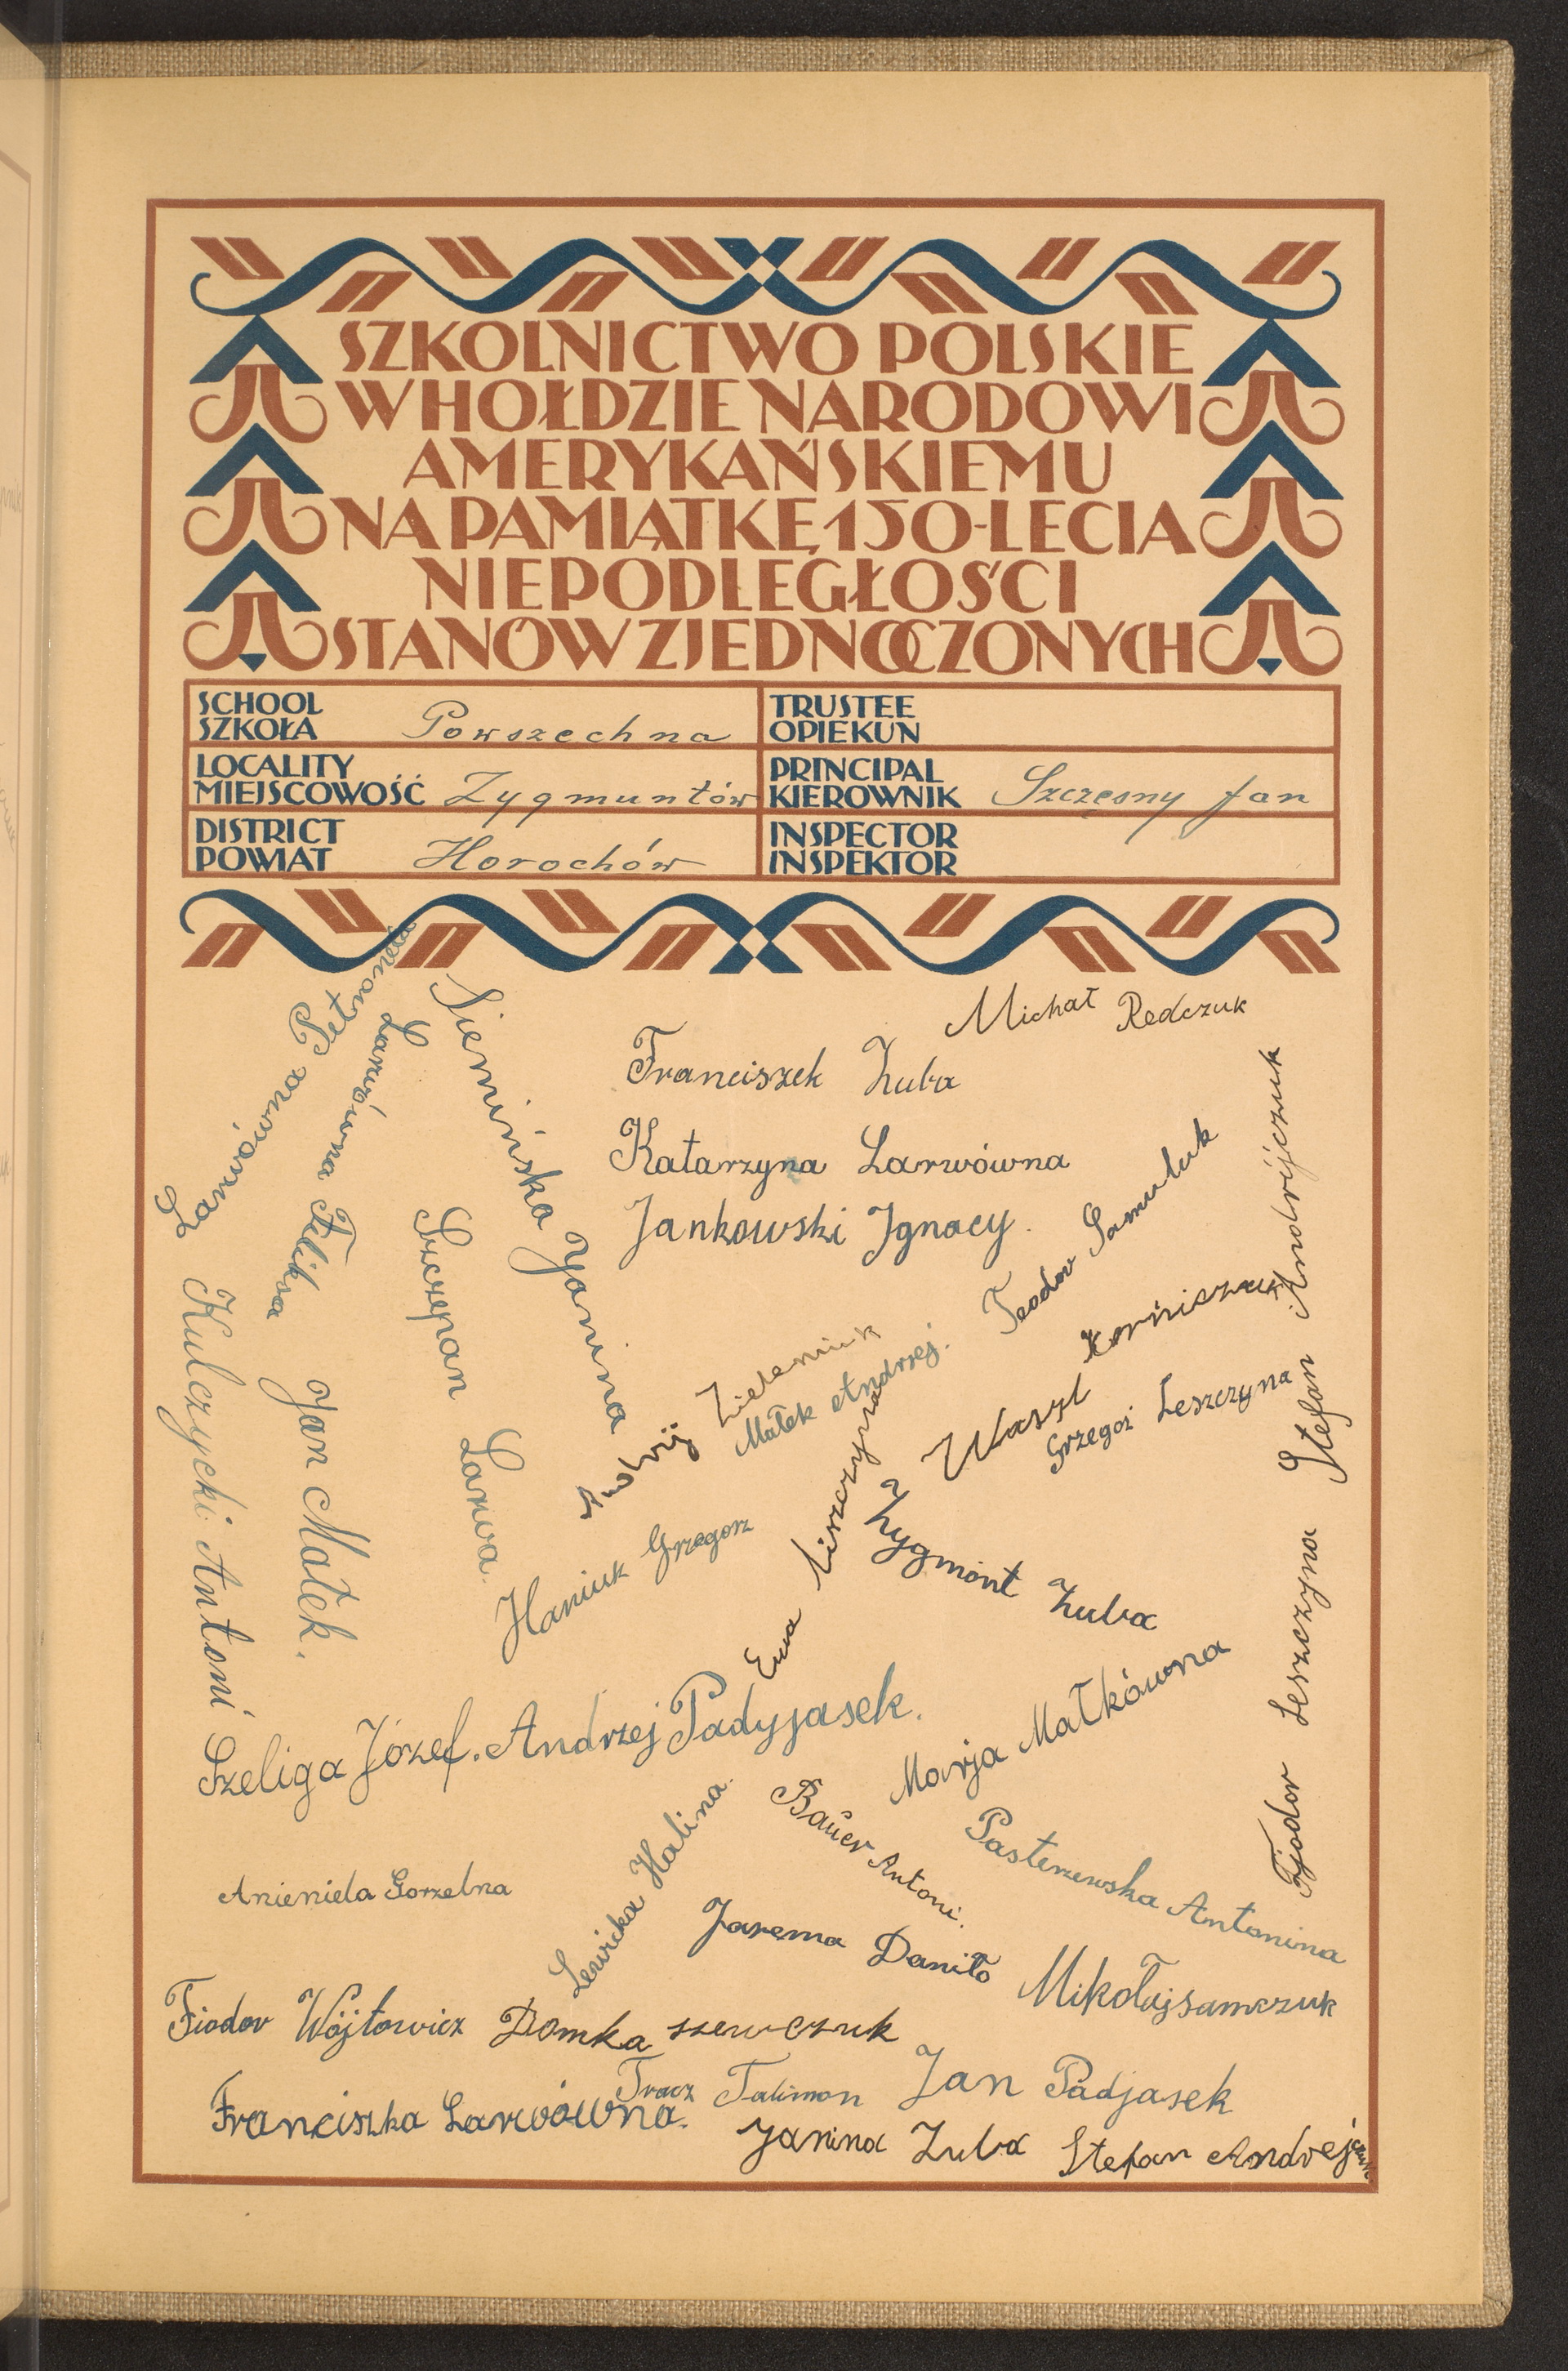 SZKOLNICTWO POLSKIE
W HOŁDZIE NARODOWI
AMERYKAŃSKIEMU
NA PAMIĄTKĘ 150-LECIA
NIEPODLEGŁOŚCI
STANÓW ZJEDNOCZONYCH
SCHOOL
SZKOŁA Powszechna
TRUSTEE
OPIEKUN
LOCALITY
MIEJSCOWOŚĆ Zygmuntów
PRINCIPAL
KIEROWNIK Szczęsny Jan
DISTRICT
POWIAT Horochów
INSPECTOR
INSPEKTOR
Michał Redczuk
Franciszek Zuba
Katarzyna Larwówna
Jankowski Ignacy.
Siemińska Janina
Larwówna Feliksa
Szczepan Larwa.
Kulczycki Antoni
Jan Małek.
Teodor Samuluk
Stefan Andrijczuk
Zieleniuk
Małek Andrzej.
Wasyl Korniszuk
Grzegoż Leszczyna
Haniuk Grzegorz
Ewa Liszczyna
Zygmónt Zuba
Fjodor Leszczyna
Szeliga Józef. Andrzej Padyjasek.
Marja Małkówna
Lewicka Halina.
Bauer Antoni.
Pasterzewska Antonina
Anieniela Gorzelna
Jarema Daniło
Mikołaj samczuk
Fiodor Wójtowicz Domka szewczuk
Tracz Talimon Jan Padjasek
Franciszka Larwówna.
Janina Zuba Stefan Andrejczuk